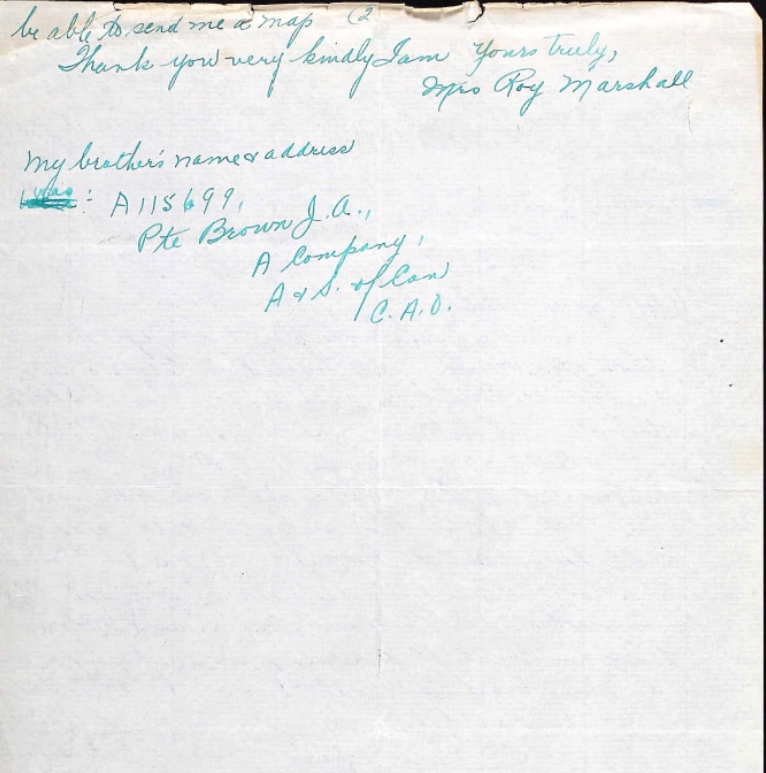 be able to send me a map (2
Thank you very kindly I am Yours truly,
Mrs Roy Marshall
My brother's name & address
was : A115699,
Pte Brown J. A.,
A Company,
A & S. of Can
C. A. O.